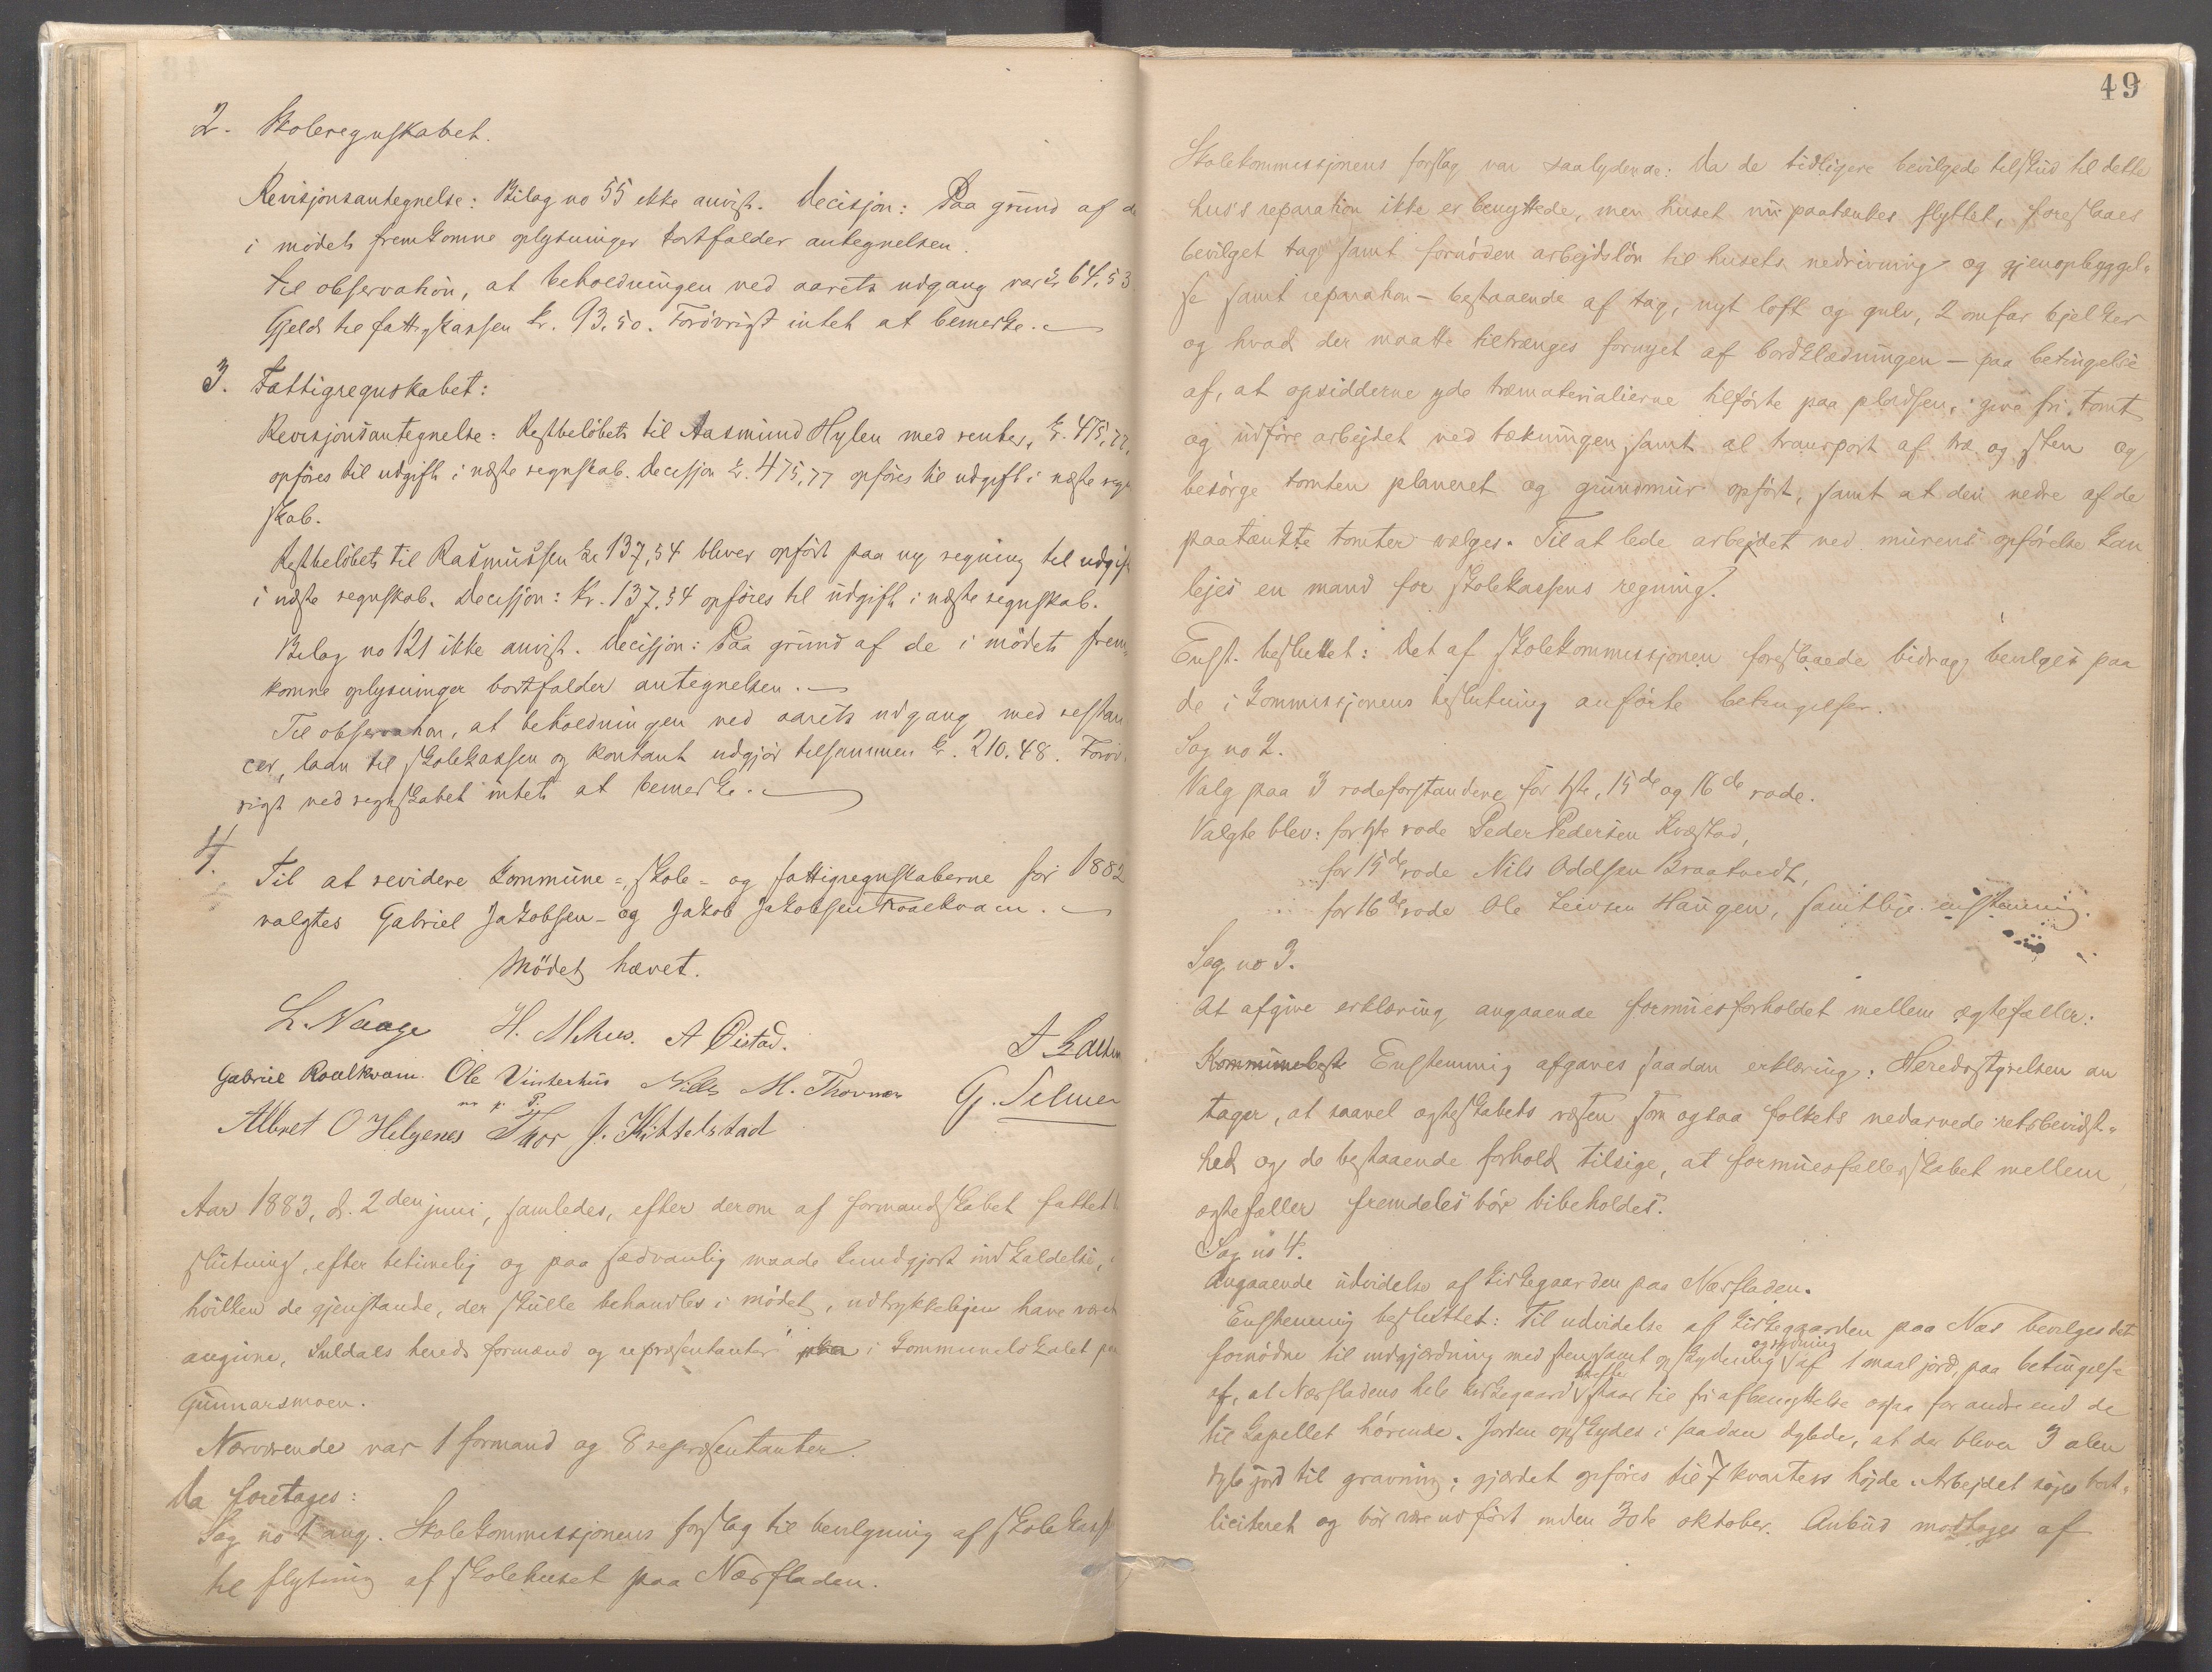 2. Skoleregnskabet.
Revisjonsantegnelse: Bilag no 55 ikke anvist. Decisjon: Paa grund af de
i mødet fremkomne oplysninger bortfalder antegnelsen.
Til observation, at beholdningen ved aarets udgang var kr 64,53
Gjeld til fattigkassen kr. 93,50. Forøvrigt intet at bemerke.
3. Fattigregnskabet:
Revisjonsantegnelse: Restbeløbet til Aasmund Hylen med renter, kr. 475,77,
opføres til udgift i næste regnskab. Decisjon kr. 475,77 opføres til udgift i næste regn
skab.
Restbeløbet til Rasmussen kr 137,54 bliver opført paa ny regning til udgift
i næste regnskab. Decisjon: kr. 137,54 opføres til udgift i næste regnskab.
Bilag no 121 ikke anvist. Decisjon: Paa grund af de i mødet frem-
komne oplysninger bortfalder antegnelsen.
Til observation, at beholdningen ved aarets udgang med restan
cer, laan til skolekassen og kontant udgjør tilsammen kr. 210.48. Forøv-
rigt ved regnskabet intet at bemerke.
4. Til at revidere kommune-, skole- og fattigregnskaberne for 1882
valgtes Gabriel Jakobsen og Jakob Jakobsen Roalkvam.
Mødet hævet.
L. Naage H. Mehus. A Øistad.
Gabriel Roalkvam. Ole Vinterhus Nills M. Thorsnes G. Selmer
m p. P.
Albret O Helgenes Thor J. Kittelstad
Aar 1883, d. 2den juni, samledes, efter derom af formandskabet fattet be
slutning, efter betimelig og paa sædvanlig maade kundgjort indkaldelse, i
hvilken de gjenstande, der skulle behandles i mødet, udtrykkeligen have været
angivne, Suldals hereds formænd og repræsentanter i kommunelokalet paa
Gunnarsmoen.
Nærværende var 1 formand og 8 repræsentanter.
Da foretages:
Sag no 1 ang. Skolekommissjonens forslag til bevilgning af skolekassen
til flytning af skolehuset paa Næsfladen.
49
Skolekommissjonens forslag var saalydende: Da de tidligere bevilgede tilskud til dette
hus's reparation ikke er benyttede, men huset nu paatænkes flyttet, foreslaaes
bevilget tag samt fornøden arbejdsløn til husets nedrivning og gjenopbyggel-
se samt reparation – bestaaende af tag, nyt loft og gulv, 2 omfar bjelker
og hvad der maatte tiltrænges fornyet af bordklædningen – paa betingelse
af, at opsidderne yde træmaterialierne tilførte paa pladsen, give fri tomt
og udføre arbejdet ved tækningen samt al transport af træ og sten og
besørge tomten planeret og grundmur opført, samt at den nedre af de
paatænkte tomter vælges. Til at lede arbejdet ved murens opførelse kan
lejes en mand for skolekassens regning.
Enst. besluttet: Det af skolekommissjonen foreslaaede bidrag bevilges paa
de i kommissjonens beslutning anførte betingelser.
Sag no 2.
Valg paa 3 rodeforstandere for 1ste, 15de og 16de rode.
Valgte blev: for 1ste rode Peder Pedersen Kvæstad,
for 15de rode Nils Oddsen Braatvedt,
for 16de rode Ole Leivsen Haugen, samtlige enstemmig.
Sag no 3.
At afgive erklæring angaaende formuesforholdet mellem ægtefæller:
Kommunebest Enstemmig afgaves saadan erklæring: Heredsstyrelsen an
tager, at saavel ægteskabets væsen som ogsaa folkets nedarvede retsbevidst-
hed og de bestaaende forhold tilsige, at formuesfællesskabet mellem
ægtefæller fremdeles bør bibeholdes.
Sag no 4.
Angaaende udvidelse af kirkegaarden paa Næsfladen.
Enstemmig besluttet: Til udvidelse af kirkegaarden paa Næs bevilges det
fornødne til indgjærdning med sten samt opskydning og rydning af 1 maal jord, paa betingelse
af, at Næsfladens hele kirkegaard staar til fri afbenyttelse ogsaa for andre end de
til kapellet hørende. Jorden opskydes i saadan dybde, at der bliver 3 alen
dyb jord til gravning; gjærdet opføres til 7 kvarters højde. Arbejdet søges bort-
liciteret og bør være udført inden 30te oktober. Anbud modtages af